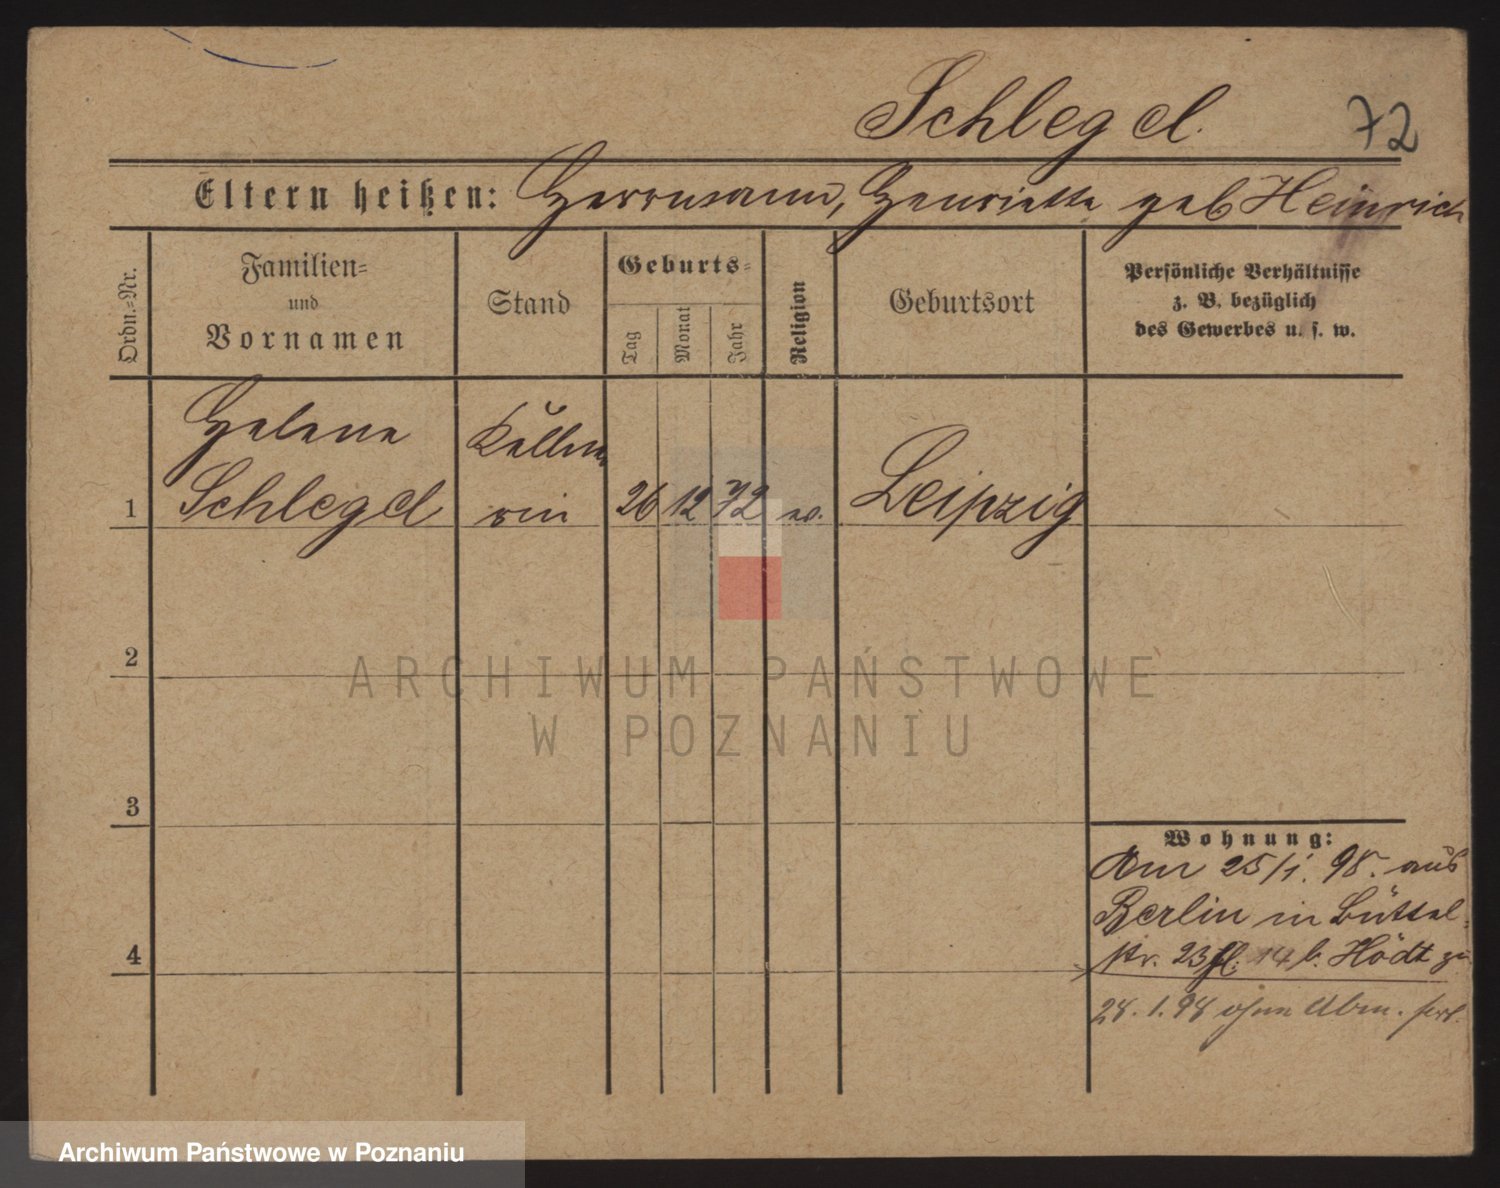 Schlegel.
72
Eltern heißen: Herrmann, Henriette geb Heinrich
Ordn.=Nr.
Familien=
und
Vornamen
Stand
Geburts=
Tag
Monat
Jahr
Religion
Geburtsort
Persönliche Verhältnisse
z. B. bezüglich
des Gewerbes u. s. w.
1
Helene
Schlegel
Kellne
rin
26
12
72
ev.
Leipzig
2
3
4
Wohnung:
Am 25/1. 98. aus
Berlin in Büttel
str. 23 14 b. Hödt zu
28. 1. 98 ohne Abm.
ARCHIWUM PAŃSTWOWE
W POZNANIU
Archiwum Państwowe w Poznaniu